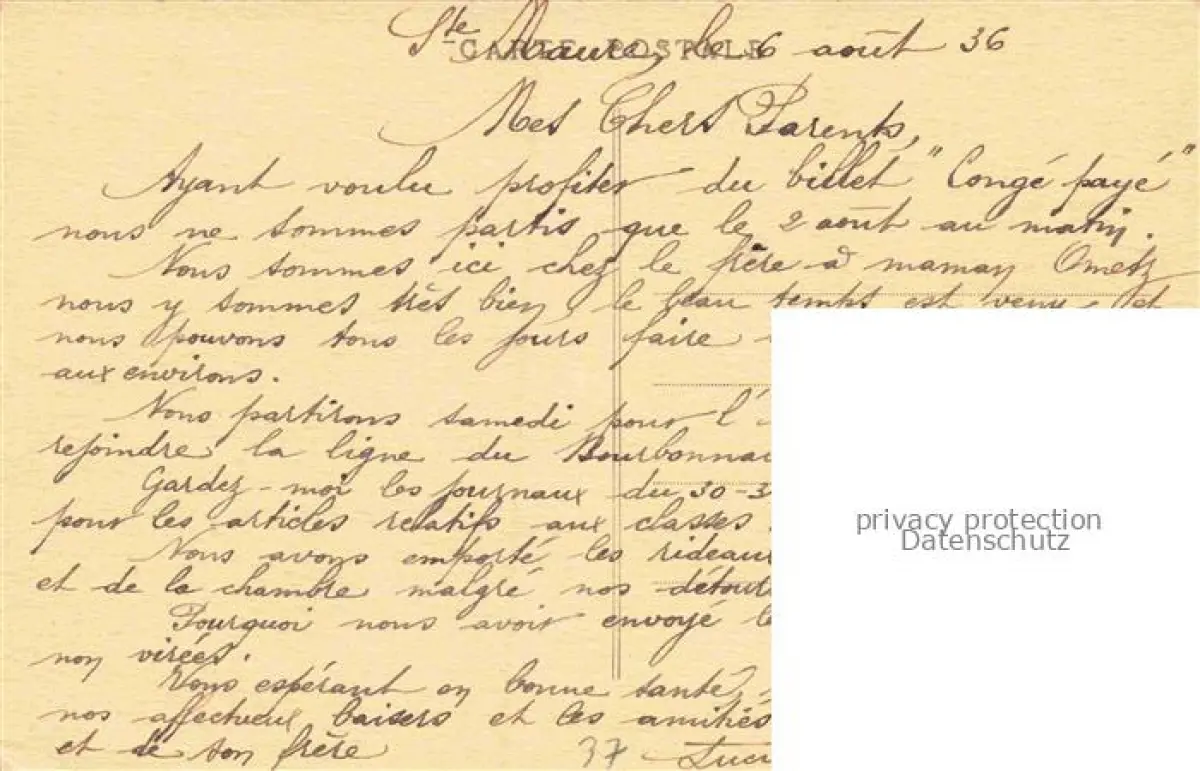 Ste Maure, le 6 août 36
CARTE POSTALE
Mes Chers Parents,
Ayant voulu profiter du billet "Congé payé"
nous ne sommes partis que le 2 août au matin.
Nous sommes ici chez le frère à maman Ometz
nous y sommes très bien, le beau temps est venu et
nous pouvons tous les jours faire
aux environs.
Nous partirons samedi pour l'
rejoindre la ligne du Bourbonnai
Gardez-moi les journaux du 30-3
pour les articles relatifs aux classes
Nous avons emporté les rideaux
et de la chambre malgré nos détours
Pourquoi nous avoir envoyé le
non virées.
Vous espérant en bonne santé,
nos affectueux baisers et les amitiés
et de son frère
37 Luci
privacy protection
Datenschutz